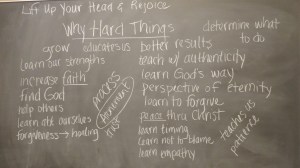 Lift Up Your Head & Rejoice
Why Hard Things
grow
educates us
learn our strengths
increase faith
find God
help others
learn abt ourselves
forgiveness → healing
process
Atonement
better results
teach w/ authenticity
learn God's way
perspective of eternity
learn to forgive
peace thru Christ
learn timing
learn not to blame
learn empathy
determine what
to do
teaches us
patience